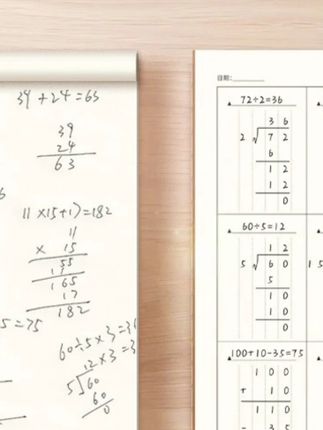 39+24=63
39
24
63
11×15+17=182
11
× 15
55
11
165
17
182
5=75
60÷5×3=3
12×3=3
5 60
60
0
日期:
72÷2=36
3 6
2 7 2
6
1 2
1 2
0
60÷5=12
1 2
5 6 0
5
1 0
1 0
0
1 5
100+10-35=75
1 0 0
+ 1 0
1 1 0
- 3 5